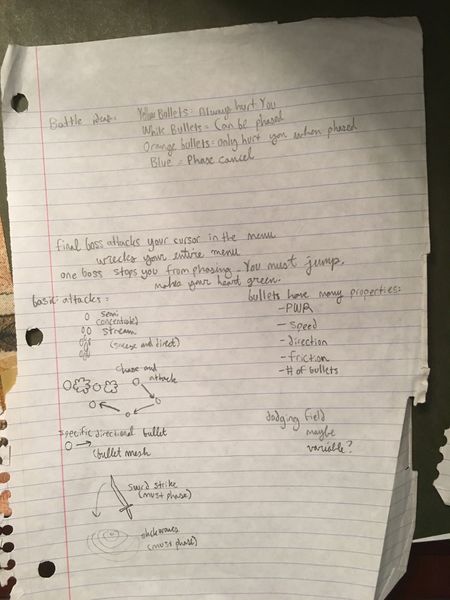 Battle ideas:
Yellow Bullets = Always hurt you
White Bullets = Can be phased
Orange bullets = only hurt you when phased
Blue = Phase cancel
final boss attacks your cursor in the menu
wrecks your entire menu
one boss stops you from phasing. You must jump.
makes your heart green.
basic attacks:
bullets have many properties:
semi
concentrated
stream
(sneeze and direct)
- PWR
- speed
- direction
- friction
- # of bullets
chase and
attack
specific directional bullet
(bullet mesh
dodging field
maybe
variable?
sword strike
(must phase)
shockwaves
(must phase)